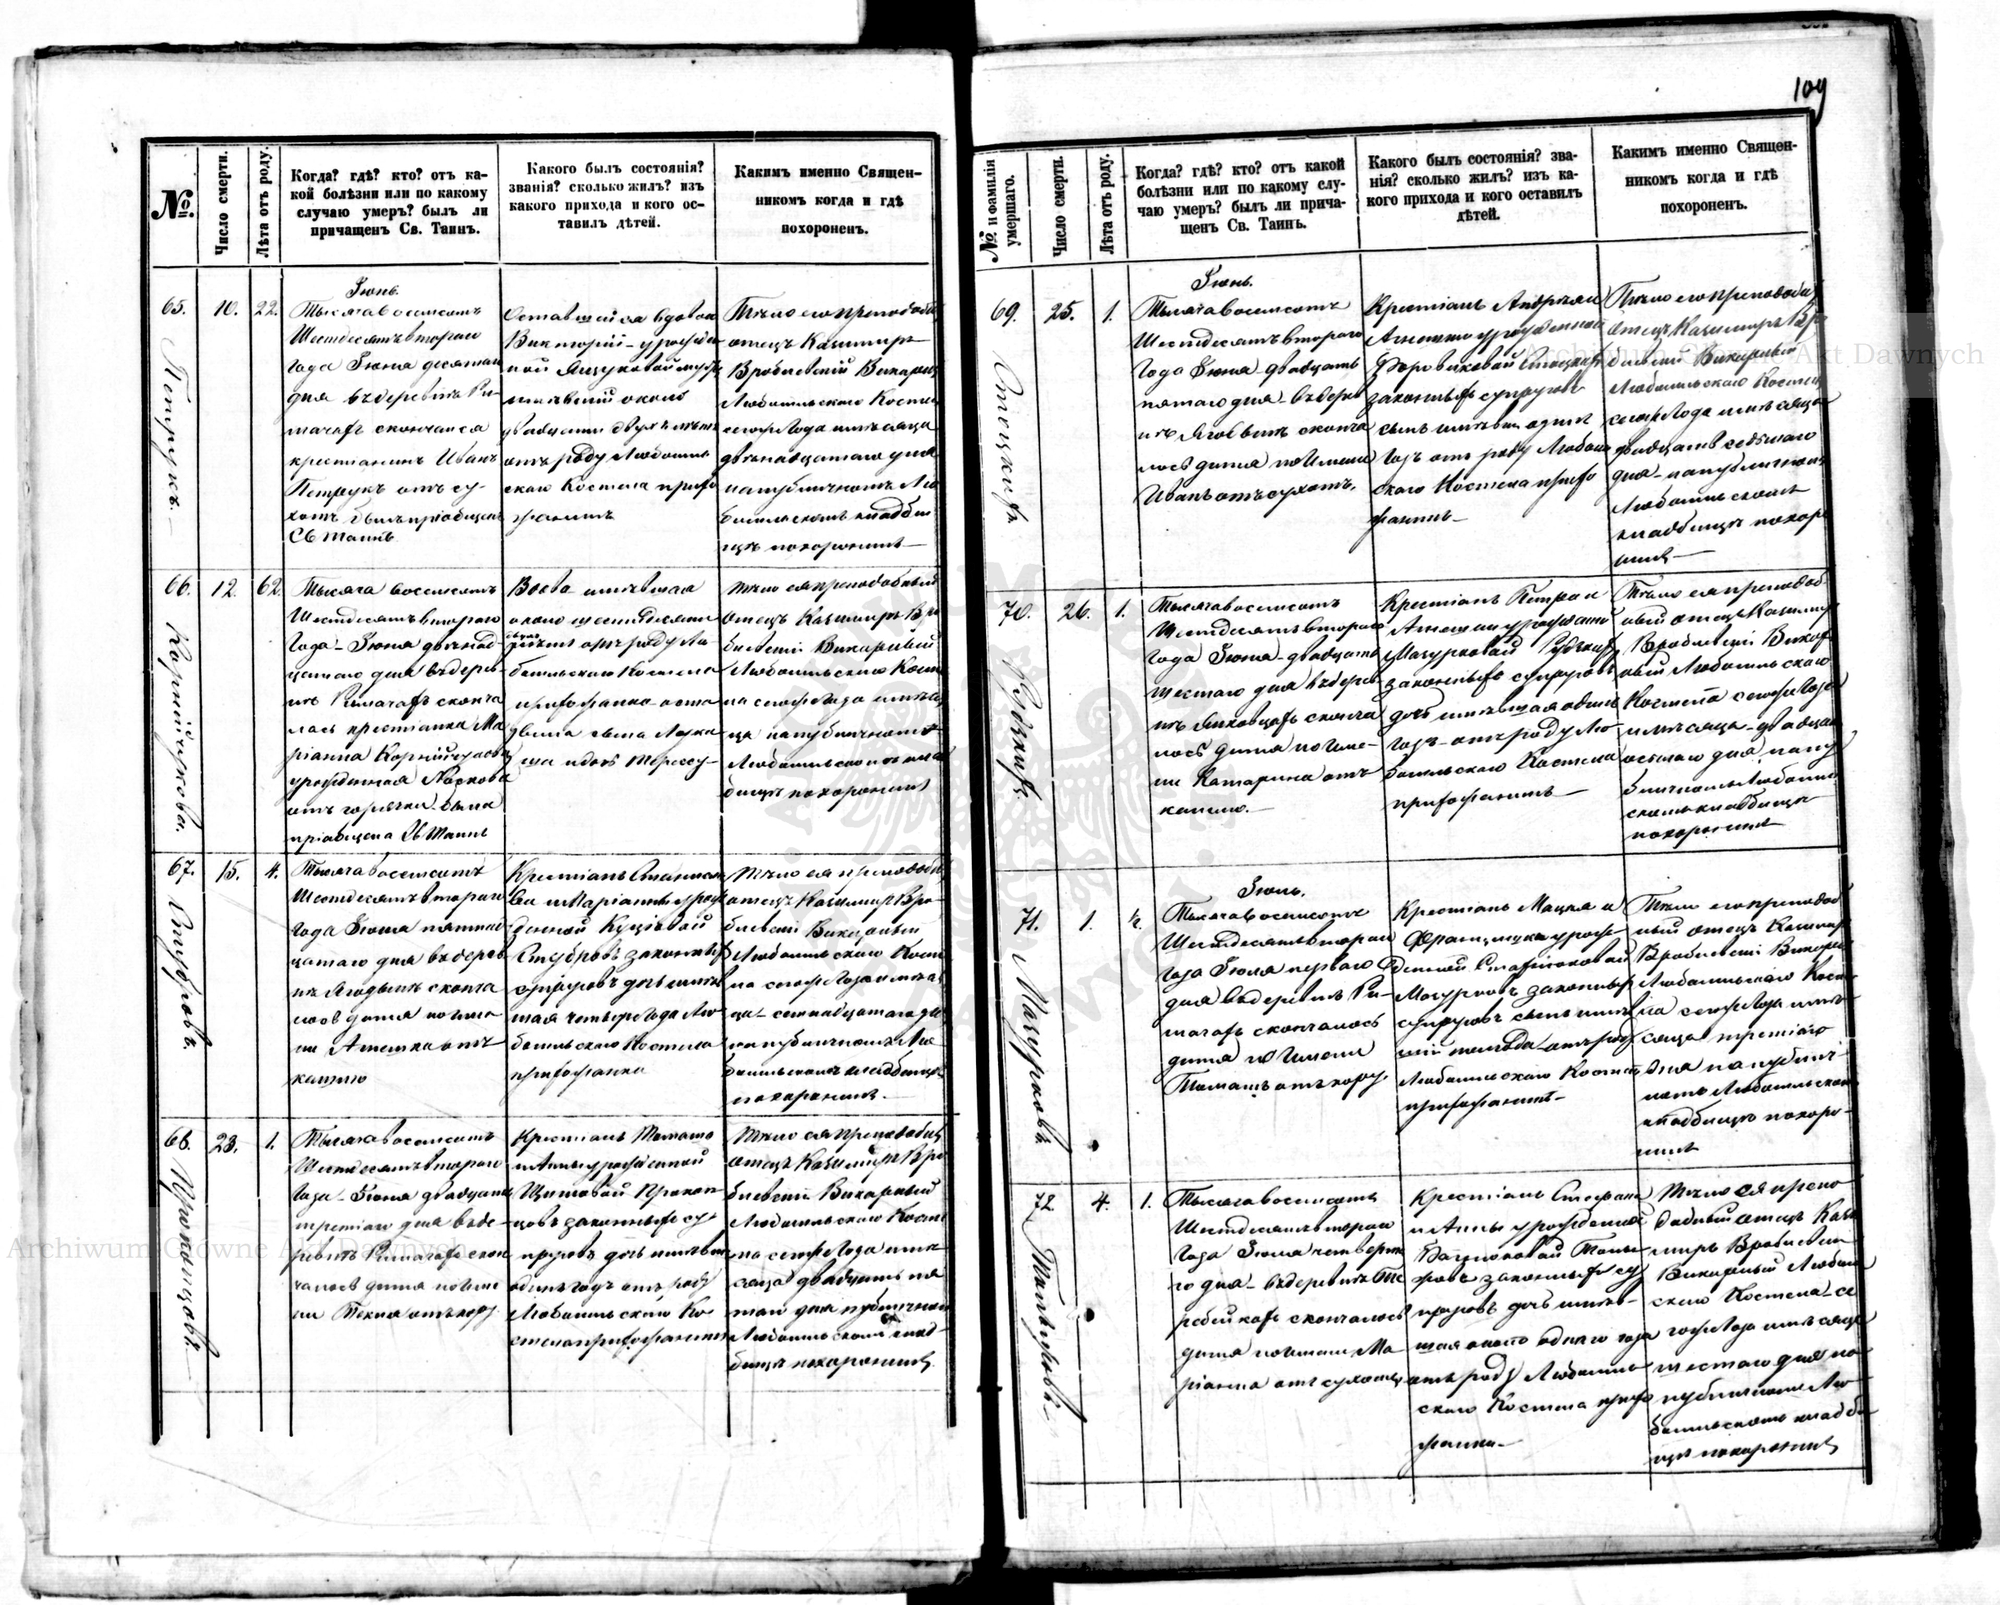 109
№.
Число смерти.
Лѣта отъ роду.
Когда? гдѣ? кто? отъ ка-
кой болѣзни или по какому
случаю умеръ? былъ ли
причащенъ Св. Таинъ.
Какого былъ состоянія?
званія? сколько жилъ? изъ
какого прихода и кого ос-
тавилъ дѣтей.
Каким​ъ именно Священ-
никомъ когда и гдѣ
похороненъ.
65.
10.
22.
Петрукъ.
Іюнь.
Тысяча восемсотъ
Шестдесятъ втораго
года Іюня десятаго
дня въ деревнѣ Ри-
мачахъ скончался
крестьянинъ Иванъ
Петрукъ отъ су-
хотъ былъ пріобщенъ
Св Таинъ
отъ роду Любомль
скаго Костела прихо
жанинъ
Тѣло его преподобн
отецъ Казимиръ
Вроблевскій Викарный
Любомльскаго Косте
сего года мѣсяца
двѣнадцатаго дня
на публичномъ Лю
бомльскомъ кладби
щѣ похоронилъ
66.
12.
62.
Корнійчукова.
Тысяча восемсотъ
Шестдесятъ втораго
Года Іюня двѣнад
цатаго дня въ дерев
нѣ Римачахъ сконча
лась крестьянка Ма
ріанна Корнійчукова
урожденная
отъ горячки была
пріобщена Св Таинъ
Вдова имѣвшая
около шестидесяти
отъ роду Лю
бомльскаго Костела
прихожанка оста
вила сына Лука
ша и дочь Терессу
Тѣло ея преподобный
отецъ Казимиръ Вро
блевскій Викарный
Любомльскаго Косте
ла сего года мѣся
ца на публичномъ
Любомльскомъ клад
бищѣ похоронилъ
67.
15.
4.
Тысяча восемсотъ
Шестдесятъ втораго
года Іюня пятнад
цатаго дня въ дерев
нѣ Ягодынѣ сконча
лось дитя по име
ни Агнешка отъ
кашлю
Крестьянъ Станисла
ва и Маріанны урож
денной
законныхъ
супруговъ дочь имѣв
шая четыре года Лю
бомльскаго Костела
прихожанка
Тѣло ея преподобн
отецъ Казимиръ Вро-
блевскій Викарный
Любомльскаго Косте
ла сего года мѣся
ца семнадцатаго дня
на публичномъ Лю
бомльскомъ кладбищѣ
похоронилъ.
68.
23.
1.
Прокопцовъ.
Тысяча восемсотъ
Шестдесятъ втораго
года Іюня двадцать
третіяго дня въ де
ревнѣ Римачахъ скон
чалось дитя по име
ни Текля отъ кору
Крестьянъ Томаша
и Анны урожденной
Прокоп
цовъ законныхъ су
пруговъ дочь имѣвшая
одинъ годъ отъ роду
Любомльскаго Ко-
стела прихожанка
Тѣло ея преподобн
отецъ Казимиръ Вро
блевскій Викарный
Любомльскаго Косте
ла сего года мѣ
сяца двадцать пя
таго дня публичномъ
Любомльскомъ клад
бищѣ похоронилъ
№. и фамилія
умершаго.
Число смерти.
Лѣта отъ роду.
Когда? гдѣ? кто? отъ какой
болѣзни или по какому слу-
чаю умеръ? былъ ли прича-
щенъ Св. Таинъ.
Какого былъ состоянія? зва-
нія? сколько жилъ? изъ ка-
кого прихода и кого оставилъ
дѣтей.
Какимъ именно Священ-
никомъ когда и гдѣ
похороненъ.
69.
25.
1.
Іюнь.
Тысяча восемсотъ
Шестдесятъ втораго
года Іюня двадцать
пятаго дня въ дерев
нѣ Ягодынѣ сконча
лось дитя по имени
Иванъ отъ сухотъ.
законныхъ супруговъ
сынъ имѣвш одинъ
годъ отъ роду Любомль
скаго Костела прихо
жанинъ
Тѣло его преподобн
отецъ Казимиръ Вро
блевскій Викарный
Любомльскаго Костела
сего года мѣсяца
двадцать седьмаго
дня на публичномъ
Любомльскомъ
кладбищѣ похоро
нилъ
70.
26.
1.
Тысяча восемсотъ
Шестдесятъ втораго
года Іюня двадцать
шестаго дня въ дерев
нѣ сконча
лось дитя по име-
ни Катарина отъ
кашлю.
Крестьянъ Петра и
Агнешки урожденной
Мазурковой
законныхъ супруговъ
дочь имѣвшая одинъ
годъ отъ роду Лю
бомльскаго Костела
прихожанка
Тѣло ея преподоб-
ный отецъ Казимиръ
Вроблевскій Викар
ный Любомльскаго
Костела сего года
мѣсяца двадцать
осьмаго дня на пу
бличномъ Любомль
скомъ кладбищѣ
похоронилъ
71.
1.
½
Мазурковъ
Іюль.
Тысяча восемсотъ
Шестдесятъ втораго
года Іюля перваго
дня въ деревнѣ Ри-
мачахъ скончалось
дитя по имени
Томашъ отъ кору.
Крестьянъ Мацея и
Францишки урож-
денной
Мазурковъ законныхъ
супруговъ сынъ имѣв
шій полгода отъ роду
Любомльскаго Костела
прихожанинъ
Тѣло его преподоб
ный отецъ Казимиръ
Вроблевскій Викарный
Любомльскаго Косте
ла сего года мѣ
сяца третіяго
дня на публич-
номъ Любомльскомъ
кладбищѣ похоро-
нилъ
72
4.
1.
Тысяча восемсотъ
Шестдесятъ втораго
года Іюля четверта
го дня въ деревнѣ Те
ребейкахъ скончалось
дитя по имени Ма
ріанна отъ сухотъ
Крестьянъ Стефана
и Анны урожденной
законныхъ су
пруговъ дочь имѣв-
шая около одного года
отъ роду Любомль
скаго Костела прихо
жанка
Тѣло ея препо
добный отецъ Кази
миръ Вроблевскій
Викарный Любомль
скаго Костела се
го года мѣсяца
шестаго дня на
публичномъ Лю
бомльскомъ кладби
щѣ похоронилъ
Archiwum Główne Akt Dawnych
Archiwum Główne Akt Dawnych